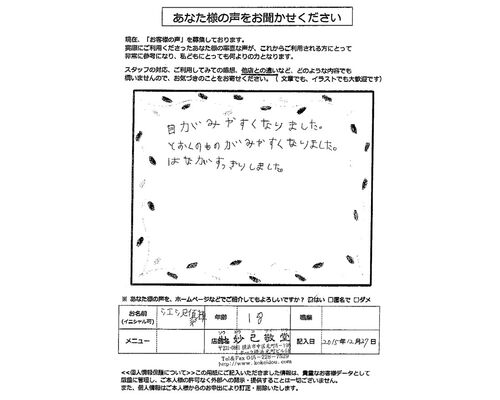 あなた様の声をお聞かせください
現在、「お客様の声」を募集しております。
実際にご利用くださったあなた様の率直な声が、これからご利用される方にとって
非常に参考になり、私どもにとっても何よりの力となります。
スタッフの対応、ご利用してみての感想、他店との違いなど、どのような内容でも
構いませんので、お気づきのことをお寄せください。（ 文章でも、イラストでも大歓迎です）
目がみやすくなりました。
とおくのものがみやすくなりました。
はながすっきりしました。
※ あなた様の声を、ホームページなどでご紹介してもよろしいですか？ ☑はい □匿名で □ダメ
お名前 様 年齢 18 職業
(イニシャル可)
メニュー 店 妙見敬堂 記入日 2015年12月27日
Tel&Fax 045-228-7629
http://www.kokeidou.com
<<個人情報保護について>>この用紙にご記入いただきました情報は、貴重なお客様データとして
厳重に管理し、ご本人様の許可なく外部への開示・提供することは一切ございません。
また、個人情報はご本人からのお申出により訂正・削除いたします。